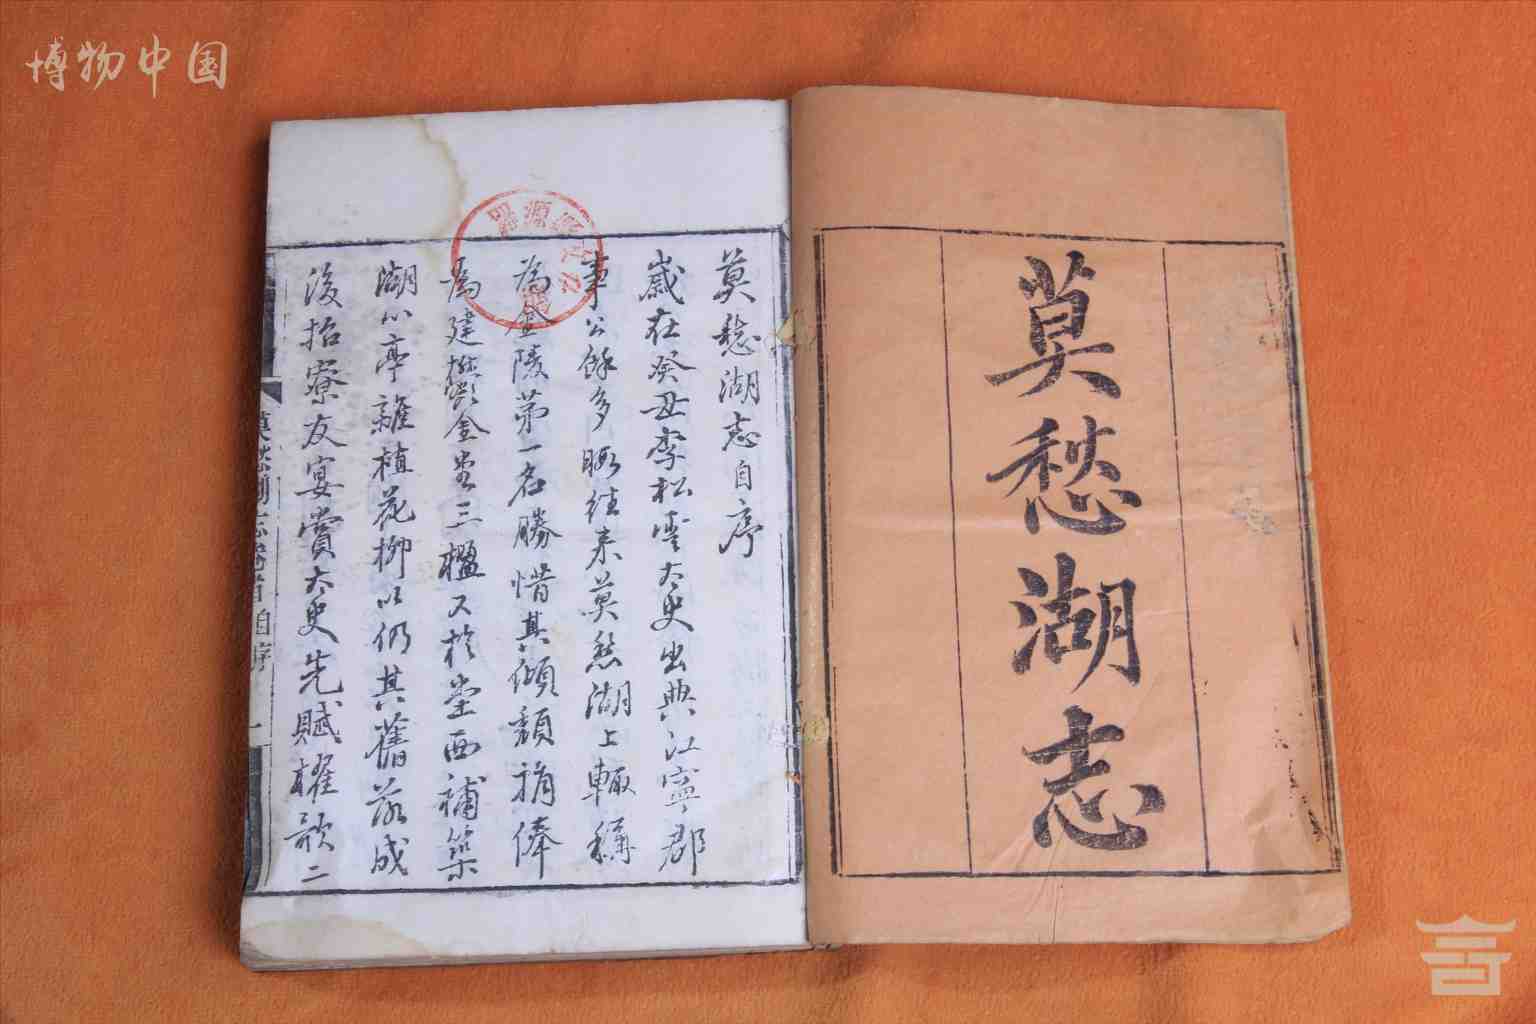 博物中国
莫愁湖志
莫愁湖志自序
歲在癸丑李松雲太史出典江寧郡
事公餘多暇往来莫愁湖上輙稱
為金陵第一名勝惜其傾頹捐俸
為建欝金堂三楹又於堂西補築
湖心亭雜植花柳以仍其舊落成
後招寮友宴賞太史先賦櫂歌二
莫愁湖志卷首自序 一
源縣文